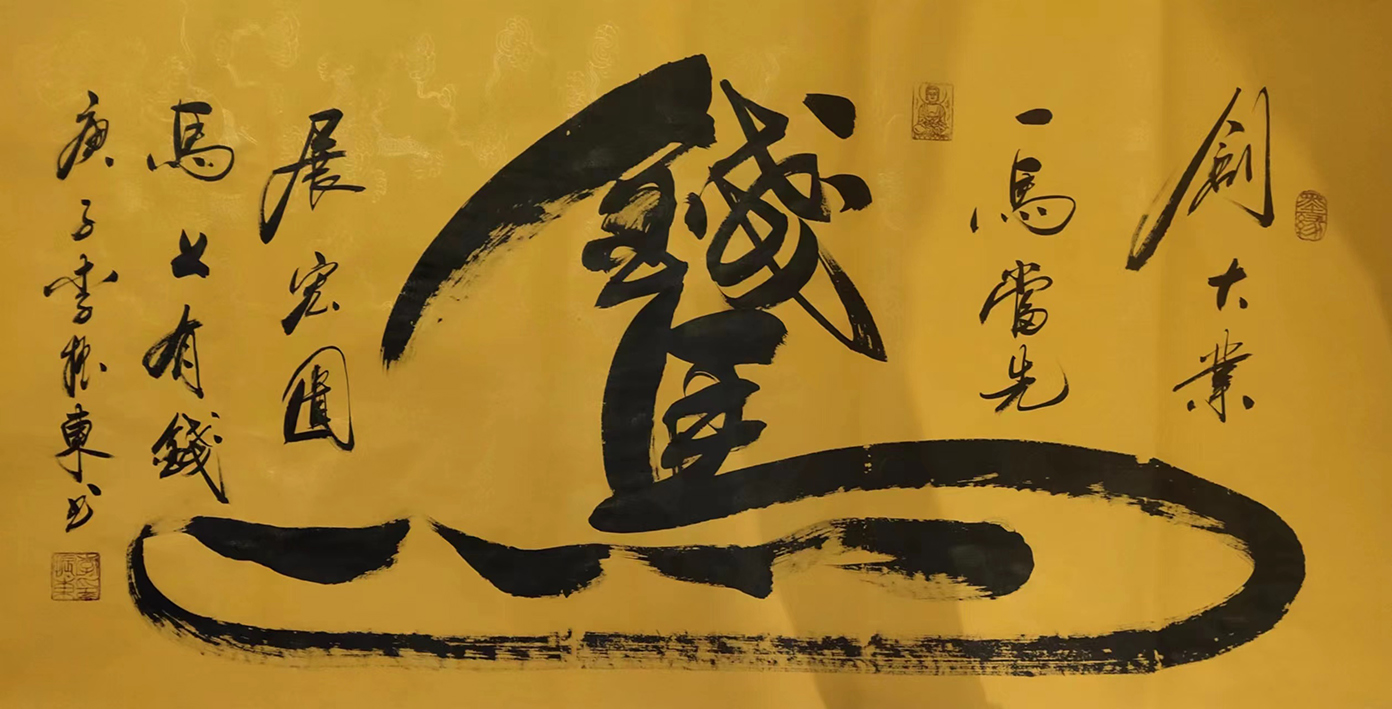 創大業
一馬當先
錢馬
展宏圖
馬上有錢
庚子李振東書